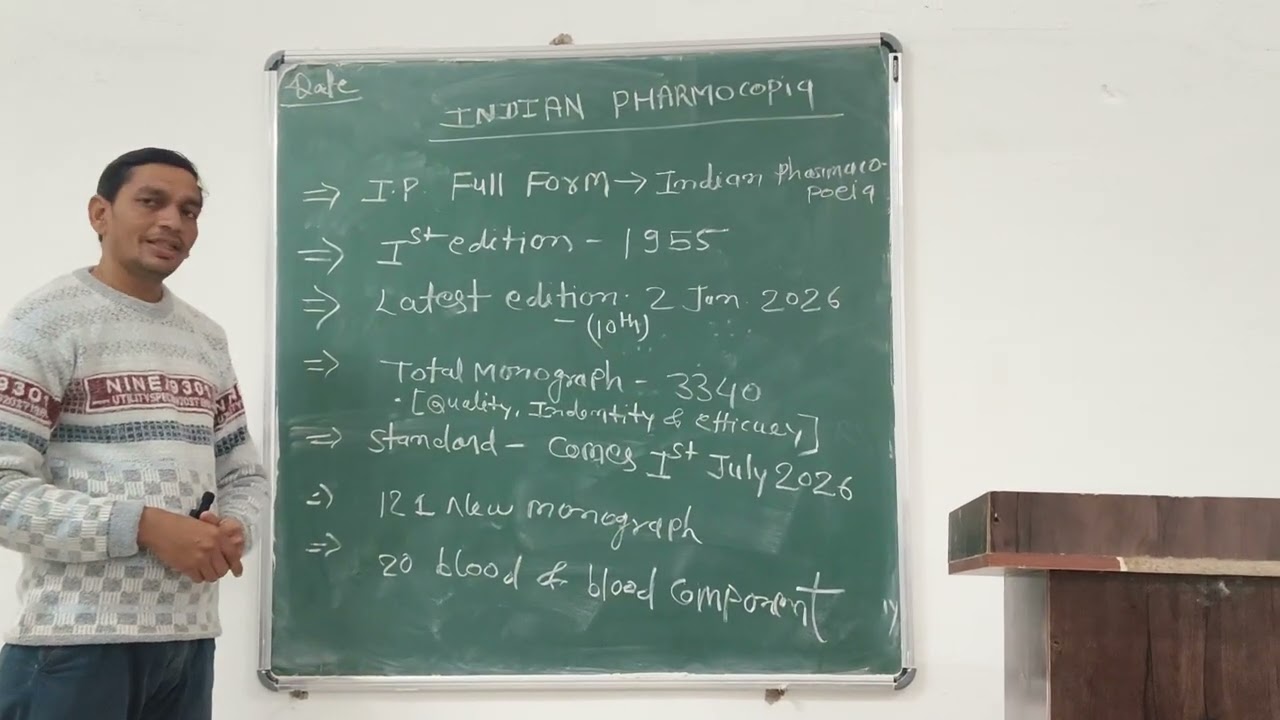 Date
INDIAN PHARMOCOPIA
⇒ I.P. Full Form → Indian Pharmaco-
poeia
⇒ Ist edition - 1955
⇒ Latest edition. 2 Jan 2026
- (10th)
⇒ Total Monograph - 3340
[Quality, Indentity & efficuey]
⇒ Standard - Comes Ist July 2026
⇒ 121 New monograph
⇒ 20 blood & blood Component
9301
NINE 9301